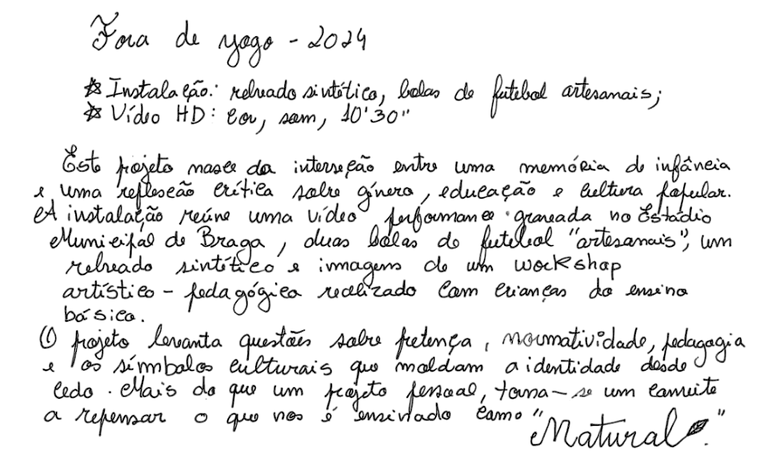 Fora de jogo - 2024
☆ Instalação: relvado sintético, bolas de futebol artesanais;
☆ Vídeo HD: cor, som, 10'30"
Este projeto nasce da interseção entre uma memória de infância
e uma reflexão crítica sobre género, educação e cultura popular.
A instalação reúne uma vídeo performance gravada no Estádio
Municipal de Braga, duas bolas de futebol "artesanais", um
relvado sintético e imagens de um workshop
artístico-pedagógico realizado com crianças do ensino
básico.
O projeto levanta questões sobre pertença, normatividade, pedagogia
e os símbolos culturais que moldam a identidade desde
cedo. Mais do que um projeto pessoal, torna-se um convite
a repensar o que nos é ensinado como "
Natural."